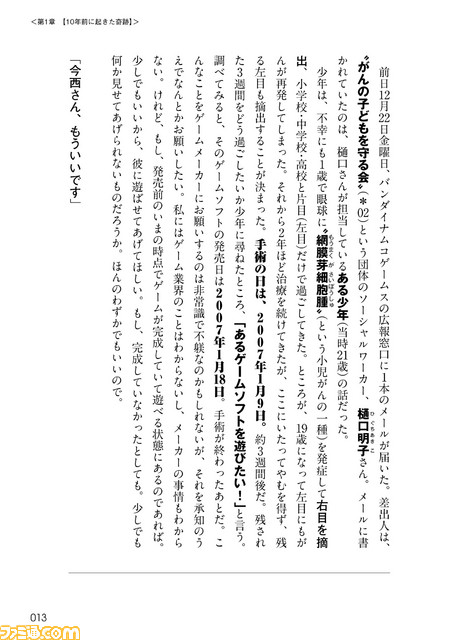 <第1章 【10年前に起きた奇跡】>
前日12月22日金曜日、バンダイナムコゲームスの広報窓口に1本のメールが届いた。差出人は、
〝がんの子どもを守る会〟(＊02)という団体のソーシャルワーカー、樋口明子さん。メールに書
ひぐちあきこ
かれていたのは、樋口さんが担当しているある少年(当時21歳)の話だった。
少年は、不幸にも1歳で眼球に〝網膜芽細胞腫〟(という小児がんの一種)を発症して右目を摘
もうまくがさいぼうしゅ
出、小学校・中学校・高校と片目(左目)だけで過ごしてきた。ところが、19歳になって左目にもが
んが再発してしまった。それから2年ほど治療を続けてきたが、ここにいたってやむを得ず、残
る左目も摘出することが決まった。手術の日は、2007年1月9日。約3週間後だ。残され
た3週間をどう過ごしたいか少年に尋ねたところ、「あるゲームソフトを遊びたい！」と言う。
調べてみると、そのゲームソフトの発売日は2007年1月18日。手術が終わったあとだ。こ
んなことをゲームメーカーにお願いするのは非常識で不躾なのかもしれないが、それを承知のう
えでなんとかお願いしたい。私にはゲーム業界のことはわからないし、メーカーの事情もわから
ない。けれど、もし、発売前のいまの時点でゲームが完成していて遊べる状態にあるのであれば、
少しでもいいから、彼に遊ばせてあげてほしい。もし、完成していなかったとしても。少しでも
何か見せてあげられないものだろうか。ほんのわずかでもいいので。
「今西さん、もういいです」
013
ファミ通.com